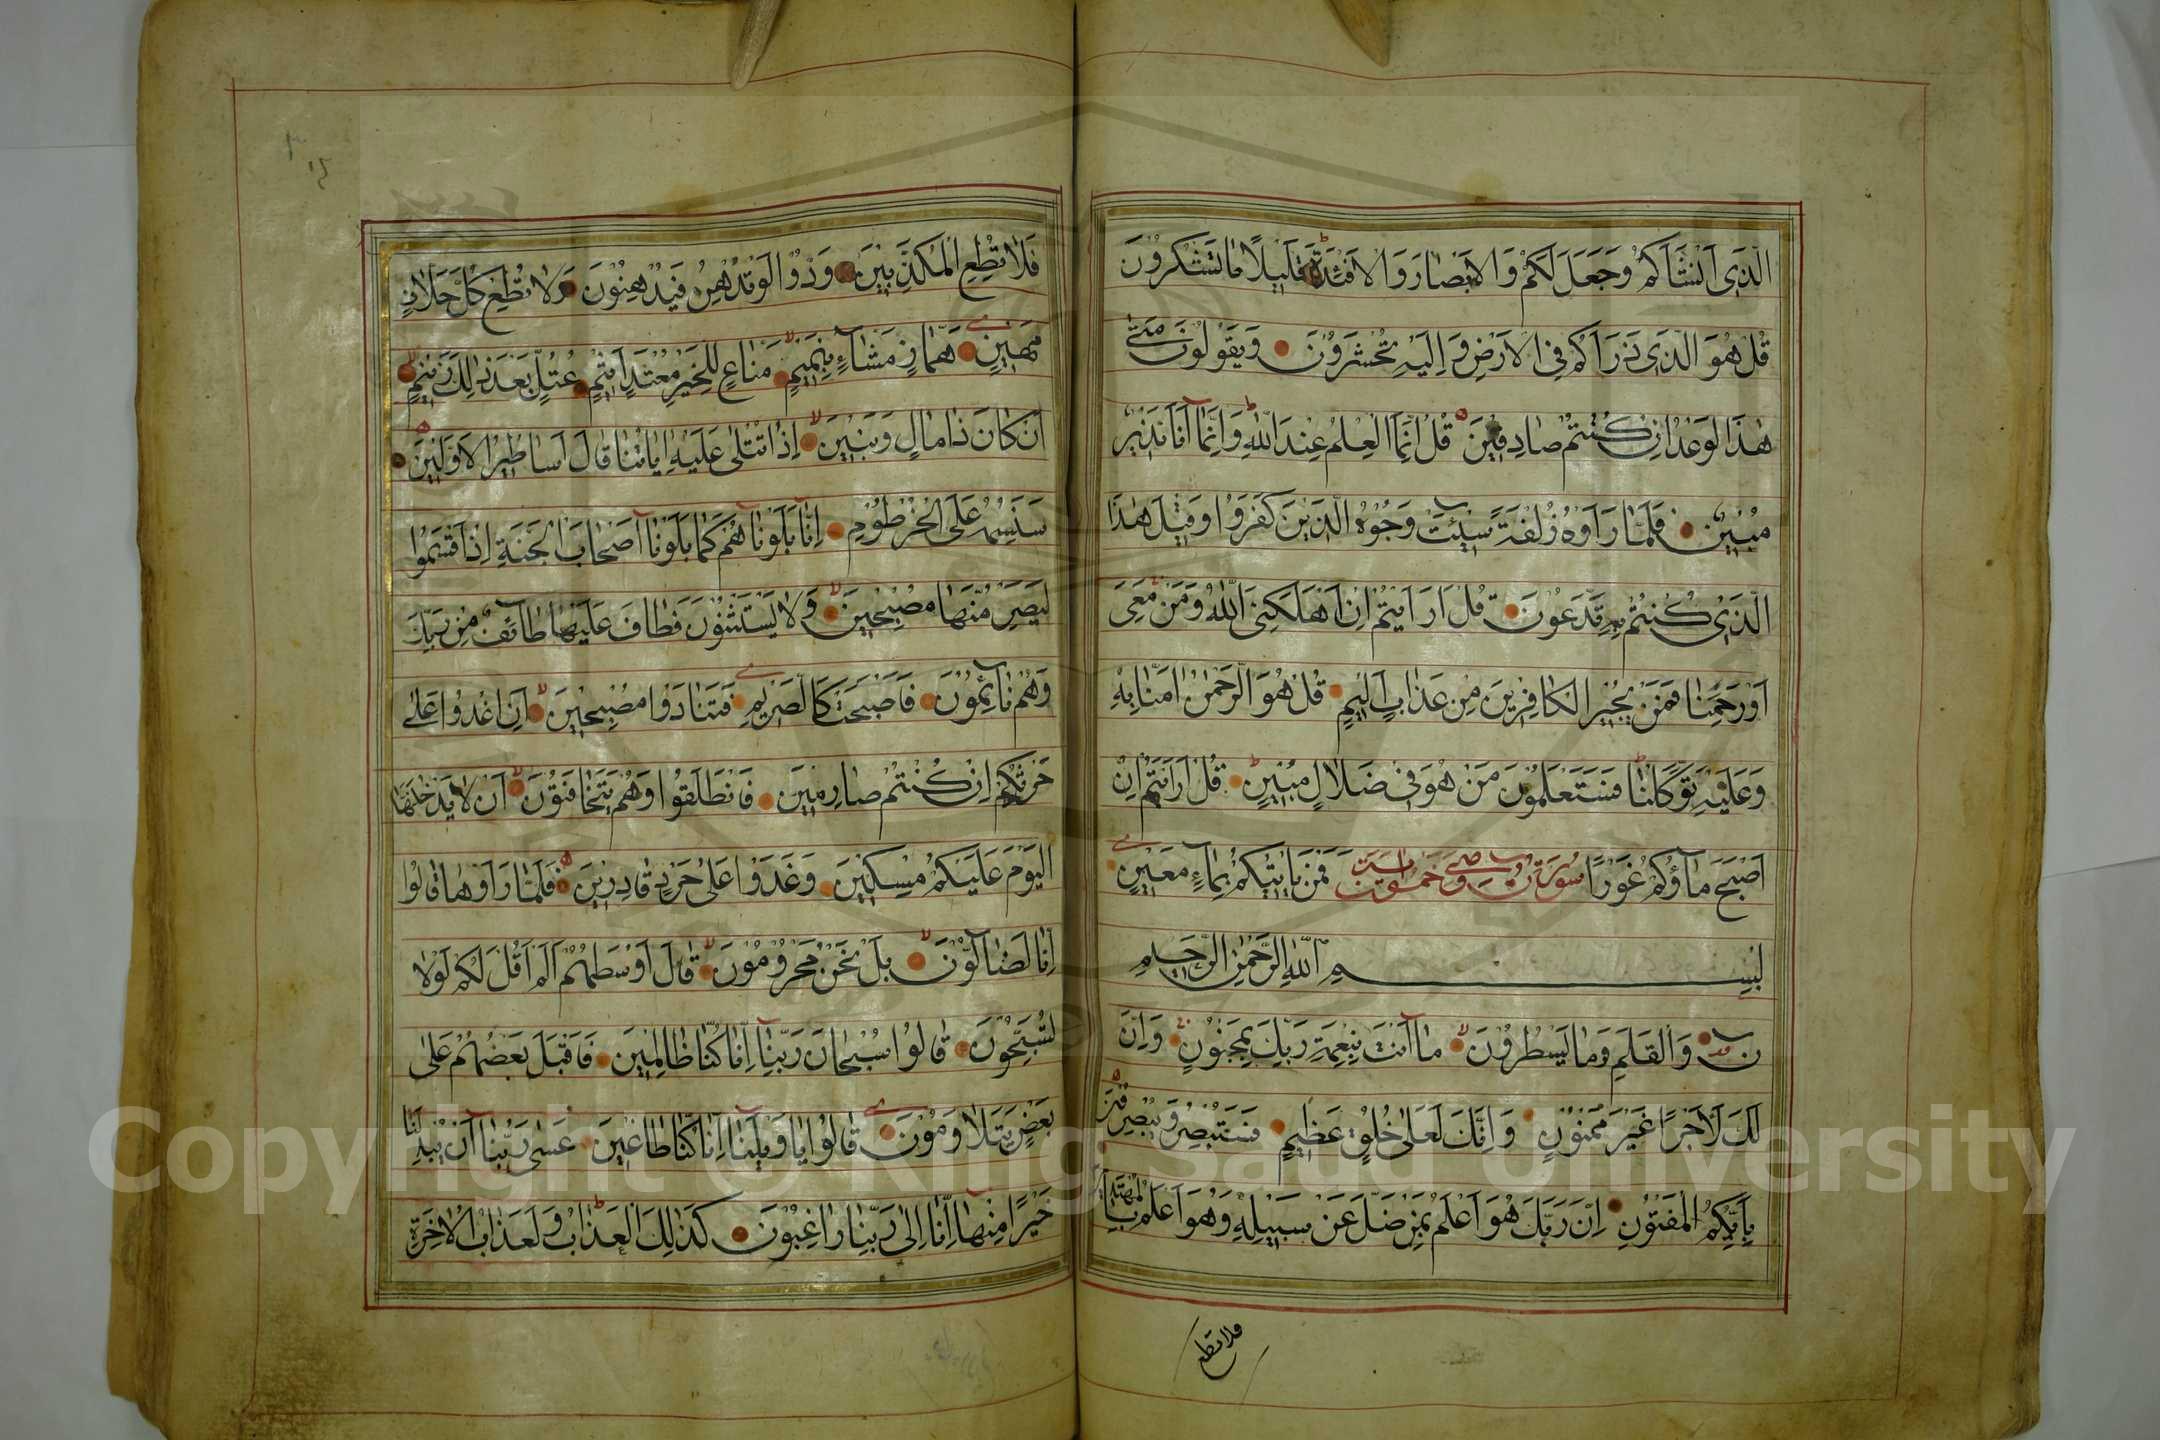 الَّذِي اَنْشَاَكُمْ وَجَعَلَ لَكُمْ وَالْاَبْصَارَ وَالْاَفْئِدَةَ قَلِيلًا مَا تَشْكُرُونَ
قُلْ هُوَ الَّذِي ذَرَاَكُمْ فِي الْاَرْضِ وَاِلَيْهِ تُحْشَرُونَ وَيَقُولُونَ مَتٰى
هٰذَا الْوَعْدُ اِنْ كُنْتُمْ صَادِقِينَ قُلْ اِنَّمَا الْعِلْمُ عِنْدَ اللّٰهِ وَاِنَّمَا اَنَا نَذِيرٌ
مُبِينٌ فَلَمَّا رَاَوْهُ زُلْفَةً سِيئَتْ وُجُوهُ الَّذِينَ كَفَرُوا وَقِيلَ هٰذَا
الَّذِي كُنْتُمْ بِهِ تَدَّعُونَ قُلْ اَرَاَيْتُمْ اِنْ اَهْلَكَنِيَ اللّٰهُ وَمَنْ مَعِيَ
اَوْ رَحِمَنَا فَمَنْ يُجِيرُ الْكَافِرِينَ مِنْ عَذَابٍ اَلِيمٍ قُلْ هُوَ الرَّحْمٰنُ اٰمَنَّا بِهِ
وَعَلَيْهِ تَوَكَّلْنَا فَسَتَعْلَمُونَ مَنْ هُوَ فِي ضَلَالٍ مُبِينٍ قُلْ اَرَاَيْتُمْ اِنْ
اَصْبَحَ مَاؤُكُمْ غَوْرًا سورة ن وخمسون اية فَمَنْ يَاْتِيكُمْ بِمَاءٍ مَعِينٍ
بِسْمِ اللّٰهِ الرَّحْمٰنِ الرَّحِيمِ
ن وَالْقَلَمِ وَمَا يَسْطُرُونَ مَا اَنْتَ بِنِعْمَةِ رَبِّكَ بِمَجْنُونٍ وَاِنَّ
لَكَ لَاَجْرًا غَيْرَ مَمْنُونٍ وَاِنَّكَ لَعَلٰى خُلُقٍ عَظِيمٍ فَسَتُبْصِرُ وَيُبْصِرُونَ
بِاَيِّكُمُ الْمَفْتُونُ اِنَّ رَبَّكَ هُوَ اَعْلَمُ بِمَنْ ضَلَّ عَنْ سَبِيلِهِ وَهُوَ اَعْلَمُ بِالْمُهْتَدِينَ
فلا تطع
فَلَا تُطِعِ الْمُكَذِّبِينَ وَدُّوا لَوْ تُدْهِنُ فَيُدْهِنُونَ وَلَا تُطِعْ كُلَّ حَلَّافٍ
مَهِينٍ هَمَّازٍ مَشَّاءٍ بِنَمِيمٍ مَنَّاعٍ لِلْخَيْرِ مُعْتَدٍ اَثِيمٍ عُتُلٍّ بَعْدَ ذٰلِكَ زَنِيمٍ
اَنْ كَانَ ذَا مَالٍ وَبَنِينَ اِذَا تُتْلٰى عَلَيْهِ اٰيَاتُنَا قَالَ اَسَاطِيرُ الْاَوَّلِينَ
سَنَسِمُهُ عَلَى الْخُرْطُومِ اِنَّا بَلَوْنَاهُمْ كَمَا بَلَوْنَا اَصْحَابَ الْجَنَّةِ اِذْ اَقْسَمُوا
لَيَصْرِمُنَّهَا مُصْبِحِينَ وَلَا يَسْتَثْنُونَ فَطَافَ عَلَيْهَا طَائِفٌ مِنْ رَبِّكَ
وَهُمْ نَائِمُونَ فَاَصْبَحَتْ كَالصَّرِيمِ فَتَنَادَوْا مُصْبِحِينَ اَنِ اغْدُوا عَلٰى
حَرْثِكُمْ اِنْ كُنْتُمْ صَارِمِينَ فَانْطَلَقُوا وَهُمْ يَتَخَافَتُونَ اَنْ لَا يَدْخُلَنَّهَا
الْيَوْمَ عَلَيْكُمْ مِسْكِينٌ وَغَدَوْا عَلٰى حَرْدٍ قَادِرِينَ فَلَمَّا رَاَوْهَا قَالُوا
اِنَّا لَضَالُّونَ بَلْ نَحْنُ مَحْرُومُونَ قَالَ اَوْسَطُهُمْ اَلَمْ اَقُلْ لَكُمْ لَوْلَا
تُسَبِّحُونَ قَالُوا سُبْحَانَ رَبِّنَا اِنَّا كُنَّا ظَالِمِينَ فَاَقْبَلَ بَعْضُهُمْ عَلٰى
بَعْضٍ يَتَلَاوَمُونَ قَالُوا يَا وَيْلَنَا اِنَّا كُنَّا طَاغِينَ عَسٰى رَبُّنَا اَنْ يُبْدِلَنَا
خَيْرًا مِنْهَا اِنَّا اِلٰى رَبِّنَا رَاغِبُونَ كَذٰلِكَ الْعَذَابُ وَلَعَذَابُ الْاٰخِرَةِ
Copyright © King Saud University